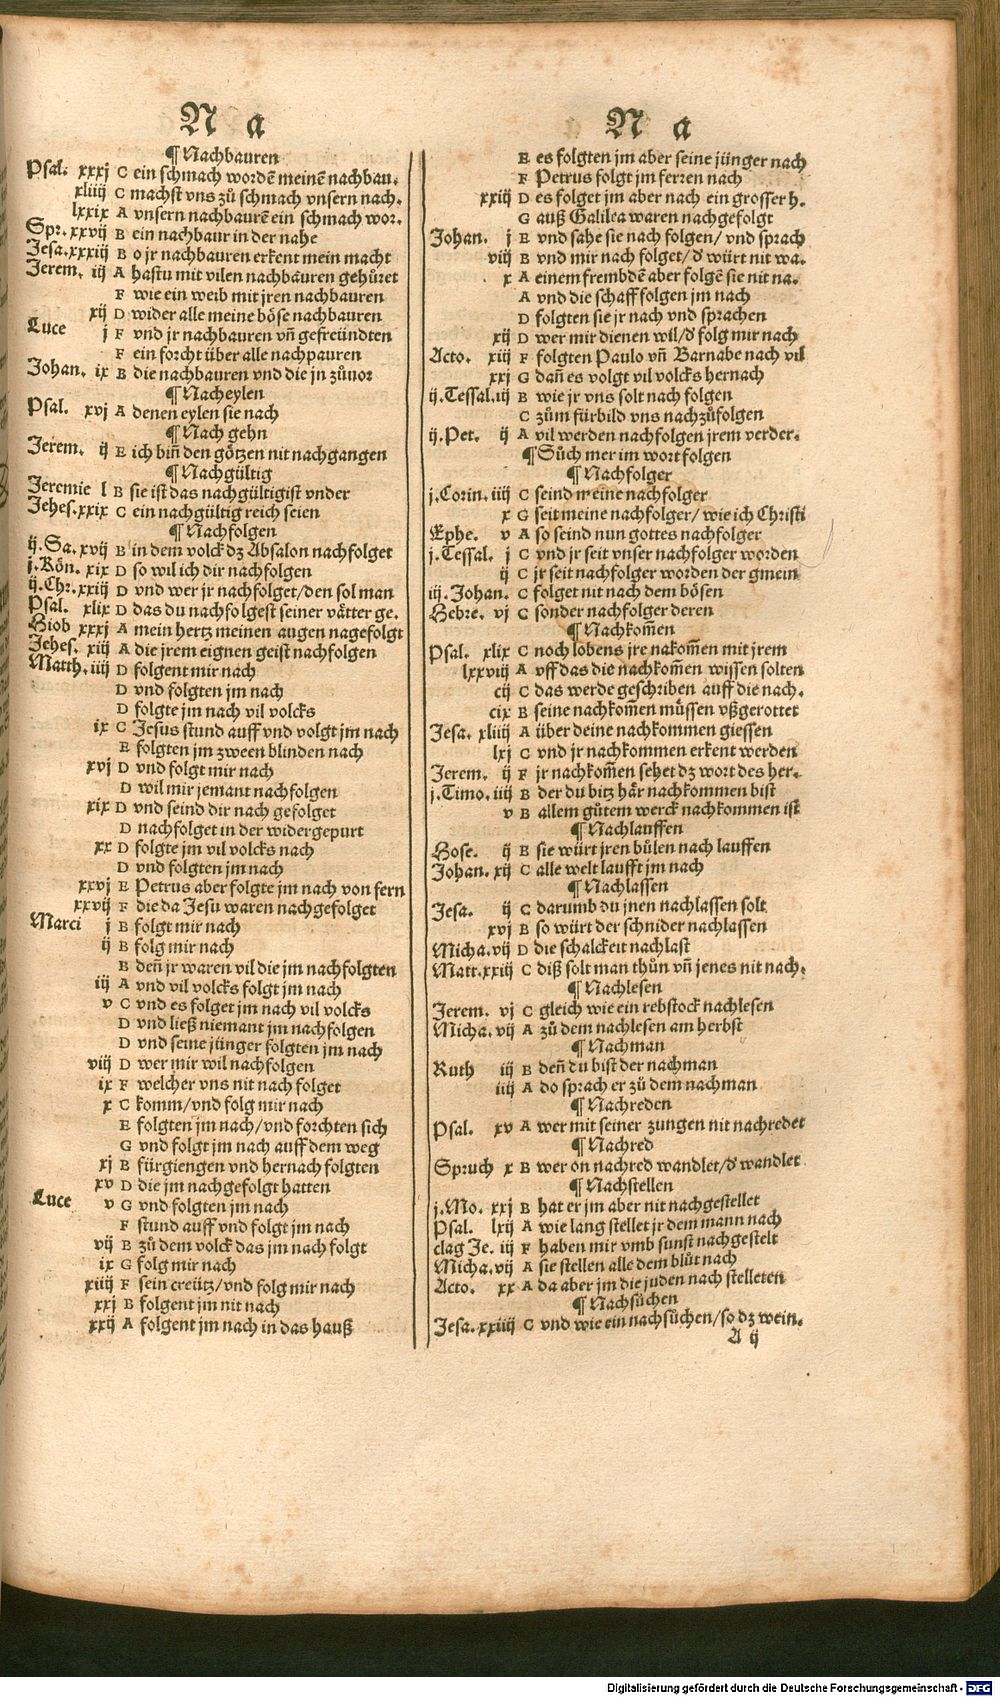 N a
¶ Nachbauren
Psal. xxxj C ein schmach wordē meinē nachbau.
xliiij C machst vns zů schmach vnsern nach.
lxxix A vnsern nachbaurē ein schmach wor.
Spr. xxvij B ein nachbaur in der nahe
Jesa. xxxiij B o jr nachbauren erkent mein macht
Jerem. iij A hastu mit vilen nachbauren gehůret
F wie ein weib mit jren nachbauren
xij D wider alle meine böse nachbauren
Luce j F vnd jr nachbauren vñ gefreündten
F ein forcht über alle nachpauren
Johan. ix B die nachbauren vnd die jn zůuor
¶ Nacheylen
Psal. xvj A denen eylen sie nach
¶ Nach gehn
Jerem. ij E ich biñ den götzen nit nachgangen
¶ Nachgültig
Jeremie l B sie ist das nachgültigist vnder
Jehes. xxix C ein nachgültig reich seien
¶ Nachfolgen
ij. Sa. xvij B in dem volck dz Absalon nachfolget
j. Kön. xix D so wil ich dir nachfolgen
ij. Chr. xxiij D vnd wer jr nachfolget/den sol man
Psal. xlix D das du nachfolgest seiner vätter ge.
Hiob xxxj A mein hertz meinen augen nagefolgt
Jehes. xiij A die jrem eignen geist nachfolgen
Matth. iiij D folgent mir nach
D vnd folgten jm nach
D folgte jm nach vil volcks
ix C Jesus stund auff vnd volgt jm nach
E folgten jm zween blinden nach
xvj D vnd folgt mir nach
D wil mir jemant nachfolgen
xix D vnd seind dir nach gefolget
D nachfolget in der widergepurt
xx D folgte jm vil volcks nach
D vnd folgten jm nach
xxvj E Petrus aber folgte jm nach von fern
xxvij F die da Jesu waren nachgefolget
Marci j B folgt mir nach
ij B folg mir nach
B deñ jr waren vil die jm nachfolgten
iij A vnd vil volcks folgt jm nach
v C vnd es folget jm nach vil volcks
D vnd ließ niemant jm nachfolgen
D vnd seine jünger folgten jm nach
viij D wer mir wil nachfolgen
ix F welcher vns nit nach folget
x C komm/vnd folg mir nach
E folgten jm nach/vnd forchten sich
G vnd folgt jm nach auff dem weg
xj B fürgiengen vnd hernach folgten
xv D die jm nachgefolgt hatten
Luce v G vnd folgten jm nach
F stund auff vnd folgt jm nach
vij B zů dem volck das jm nach folgt
ix G folg mir nach
xiiij F sein creütz/vnd folg mir nach
xxj B folgent jm nit nach
xxij A folgent jm nach in das hauß
N a
E es folgten jm aber seine jünger nach
F Petrus folgt jm ferren nach
xxiij D es folget jm aber nach ein grosser h.
G auß Galilea waren nachgefolgt
Johan. j E vnd sahe sie nach folgen/ vnd sprach
viij B vnd mir nach folget/d' würt nit wa.
x A einem frembdē aber folgē sie nit na.
A vnd die schaff folgen jm nach
D folgten sie jr nach vnd sprachen
xij D wer mir dienen wil/d' folg mir nach
Acto. xiij F folgten Paulo vñ Barnabe nach vil
xxj G dañ es volgt vil volcks hernach
ij. Tessal. iij B wie jr vns solt nach folgen
C zům fürbild vns nachzůfolgen
ij. Pet. ij A vil werden nachfolgen jrem verder.
¶ Sůch mer im wort folgen
¶ Nachfolger
j. Corin. iiij C seind meine nachfolger
x G seit meine nachfolger/ wie ich Christi
Ephe. v A so seind nun gottes nachfolger
j. Tessal. j C vnd jr seit vnser nachfolger worden
ij C jr seit nachfolger worden der gmein
iij. Johan. C folget nit nach dem bösen
Hebre. vj C sonder nachfolger deren
¶ Nachkom̄en
Psal. xlix C noch lobens jre nakom̄en mit jrem
lxxviij A vff das die nachkom̄en wissen solten
cij C das werde geschriben auff die nach.
cix B seine nachkom̄en müssen vßgerottet
Jesa. xliiij A über deine nachkommen giessen
lxj C vnd jr nachkommen erkent werden
Jerem. ij F jr nachkom̄en sehet dz wort des her.
j. Timo. iiij B der du bitz här nachkommen bist
v B allem gůtem werck nachkommen ist
¶ Nachlauffen
Hose. ij B sie würt jren bůlen nach lauffen
Johan. xij C alle welt laufft jm nach
¶ Nachlassen
Jesa. ij C darumb du jnen nachlassen solt
xvj B so würt der schnider nachlassen
Micha. vij D die schalckeit nachlast
Matt. xxiij C diß solt man thůn vñ jenes nit nach.
¶ Nachlesen
Jerem. vj C gleich wie ein rebstock nachlesen
Micha. vij A zů dem nachlesen am herbst
¶ Nachman
Ruth iij B deñ du bist der nachman
iiij A do sprach er zů dem nachman
¶ Nachreden
Psal. xv A wer mit seiner zungen nit nachredet
¶ Nachred
Spruch x B wer on nachred wandlet/d' wandlet
¶ Nachstellen
j. Mo. xxj B hat er jm aber nit nachgestellet
Psal. lxij A wie lang stellet jr dem mann nach
clag Je. iij F haben mir vmb sunst nachgestelt
Micha. vij A sie stellen alle dem blůt nach
Acto. xx A da aber jm die juden nach stelleten
¶ Nachsůchen
Jesa. xxiiij C vnd wie ein nachsůchen/so dz wein.
A ij
Digitalisierung gefördert durch die Deutsche Forschungsgemeinschaft - DFG